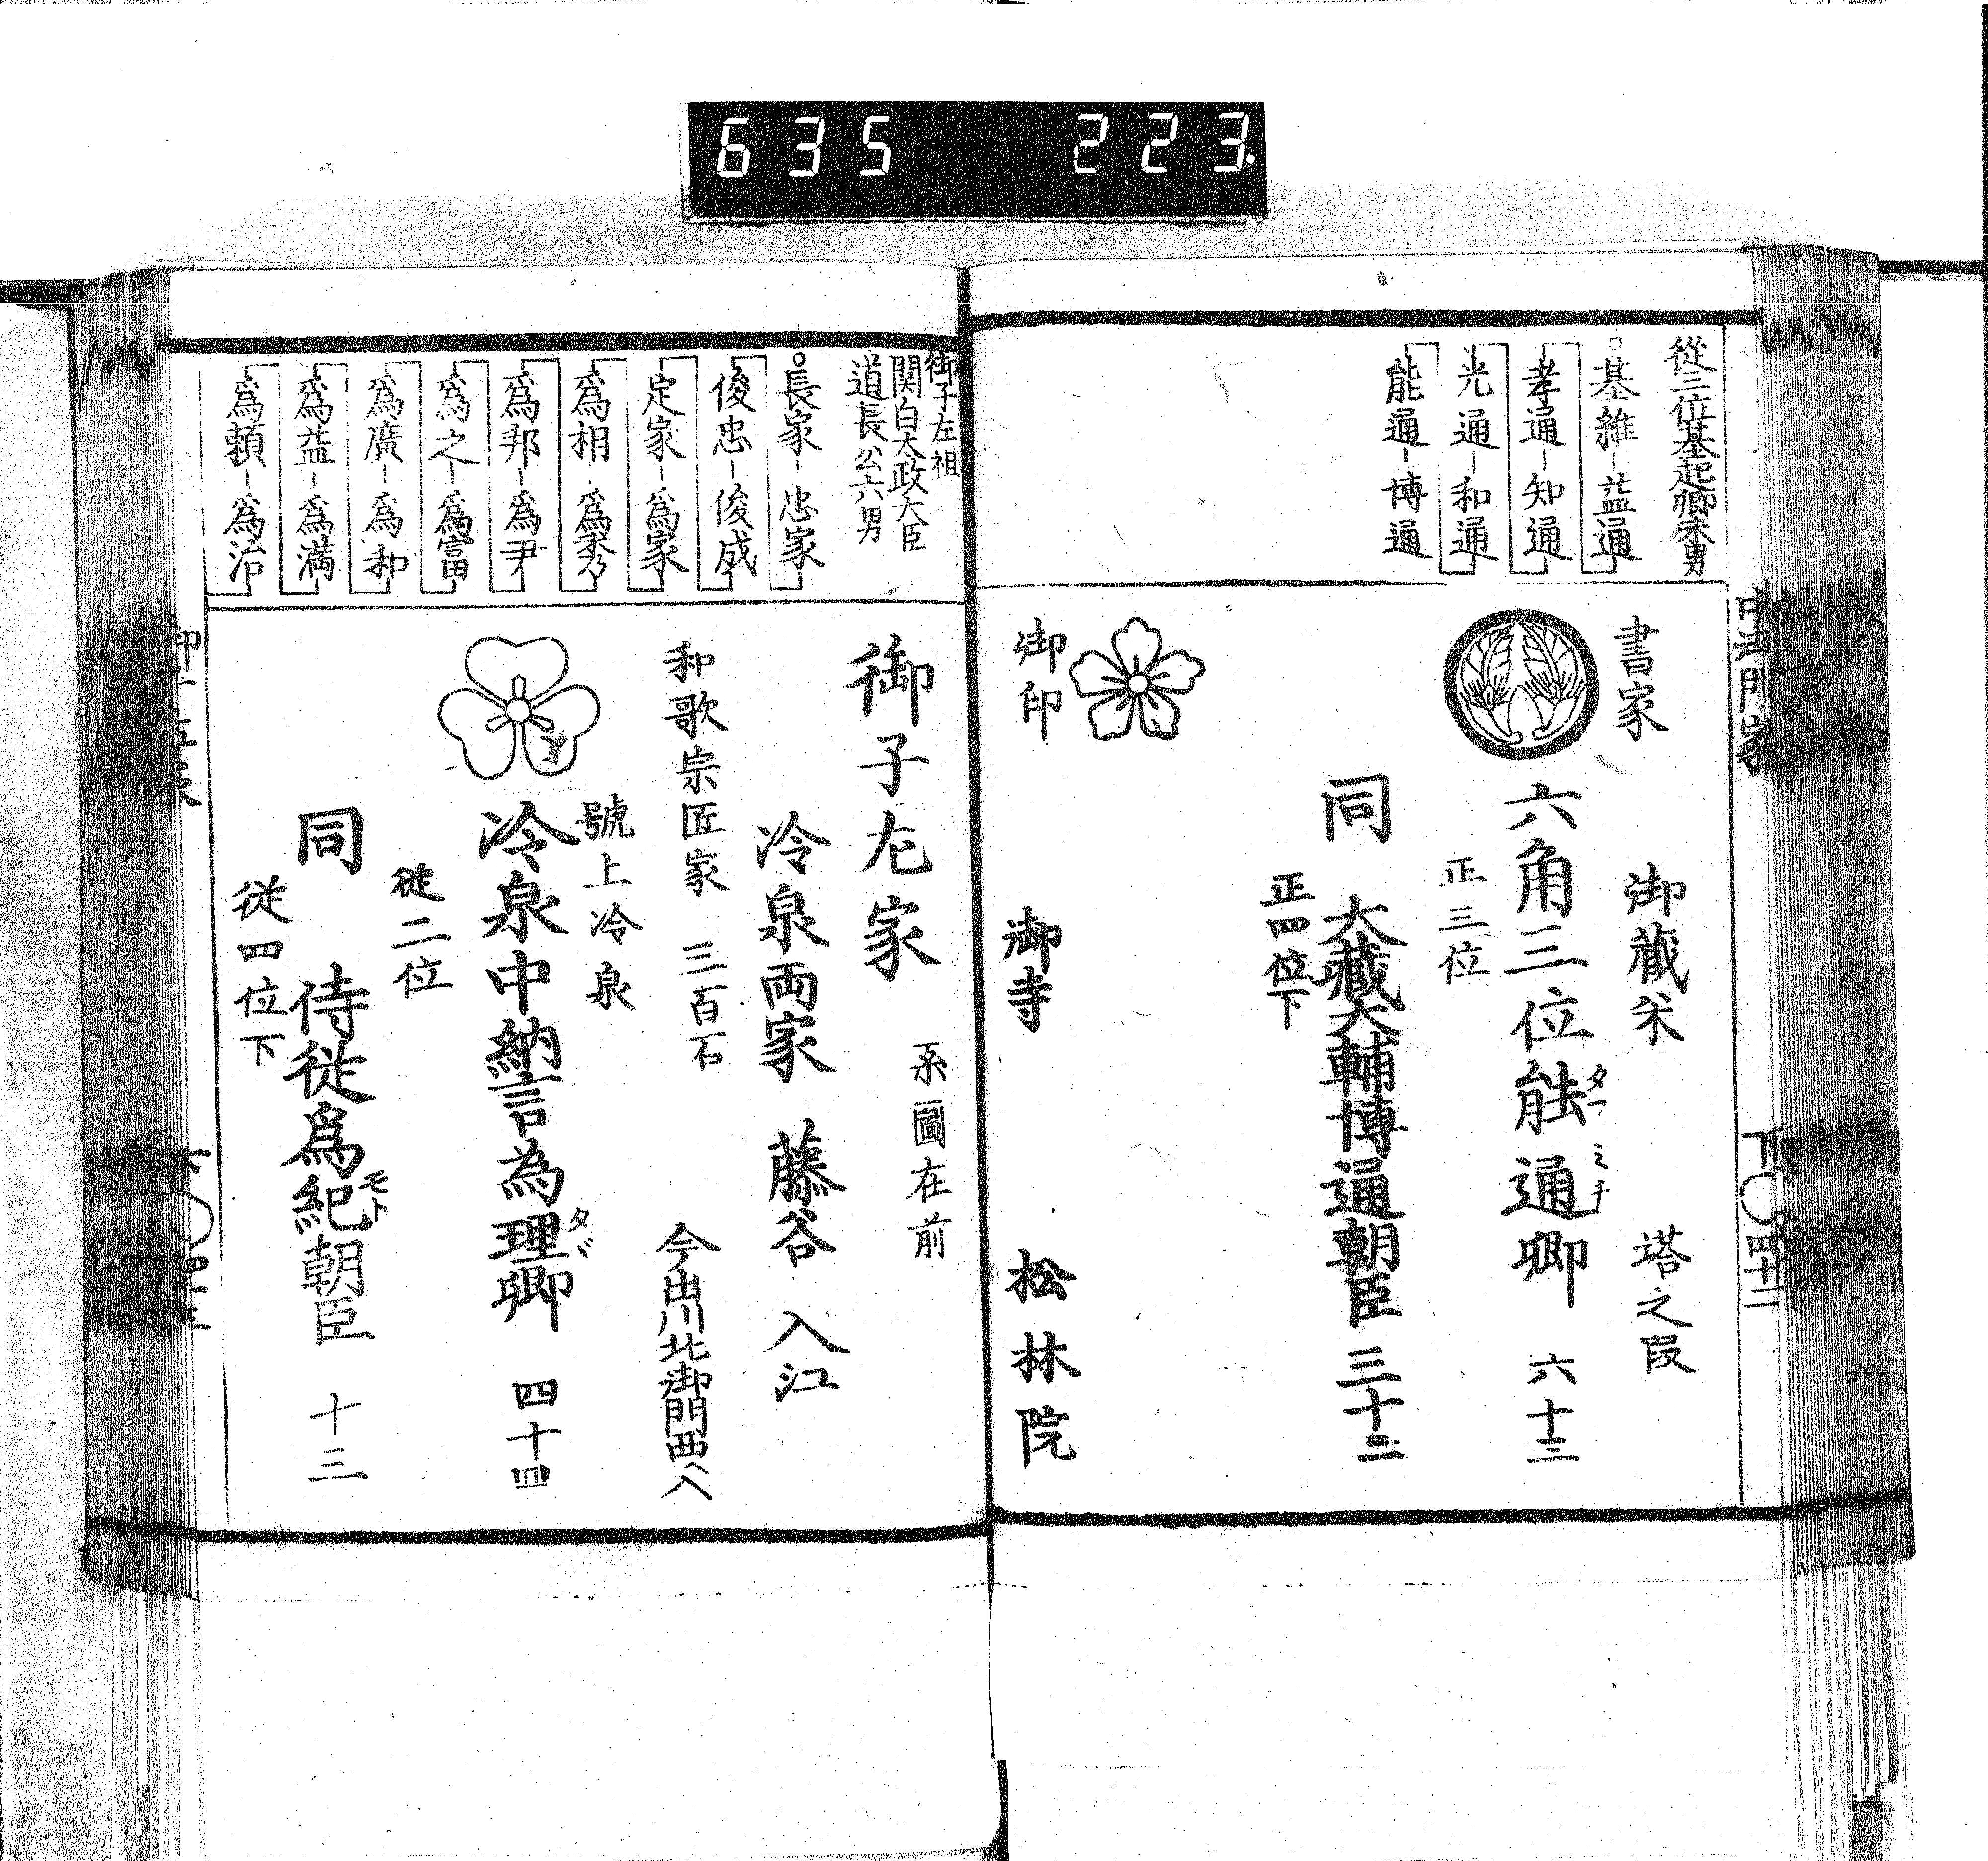 635 223.
従三位基起卿末男
基維-益通
孝通-知通
光通-和通
能通-博通
書家
御蔵米
塔之段
六角三位能通卿 六十三
タフ ミチ
正三位
同 大藏大輔博通朝臣 三十二
正四位下
御印
御寺
松林院
下〇四十二
御子左祖
関白太政大臣
道長公六男
長家-忠家
俊忠-俊成
定家-為家
為相-為秀
為邦-為尹
為之-為富
為廣-為和
為益-為満
為頼-為治
御子左家
系圖在前
冷泉両家 藤谷 入江
和歌宗匠家 三百石
今出川北御門西へ入
號上冷泉
冷泉中納言為理卿 四十四
タヾ
従二位
同 侍従為紀朝臣 十三
モト
従四位下